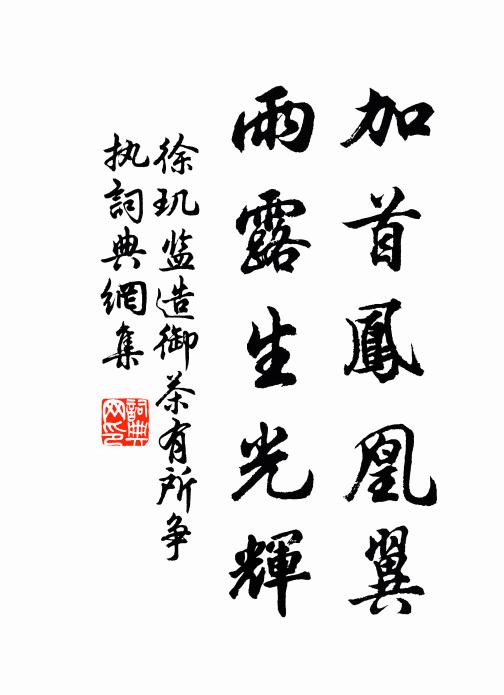 加首鳳凰翼
雨露生光輝
徐玑监造御茶有所争
执詞典網集
詞典
网印